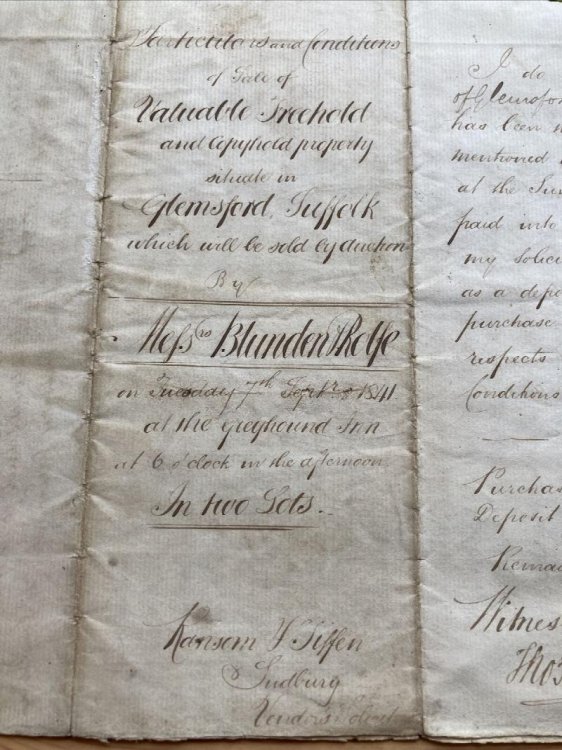 Particulars and Conditions
of Sale of
Valuable Freehold
and Copyhold property
situate in
Glemsford, Suffolk
which will be sold by auction
By
Messrs Blunden & Rolfe
on Tuesday 7th Septr 1841
at the Greyhound Inn
at 6 o'clock in the afternoon
In two Lots.
Ransom & Siffen
Sudbury
Vendors Solicit
I do
of Glemsfor
has been
mentioned
at the
paid into
my solici
as a depo
purchase
respects
Conditions
Purchas
Deposit
Remai
Witnes
Thos